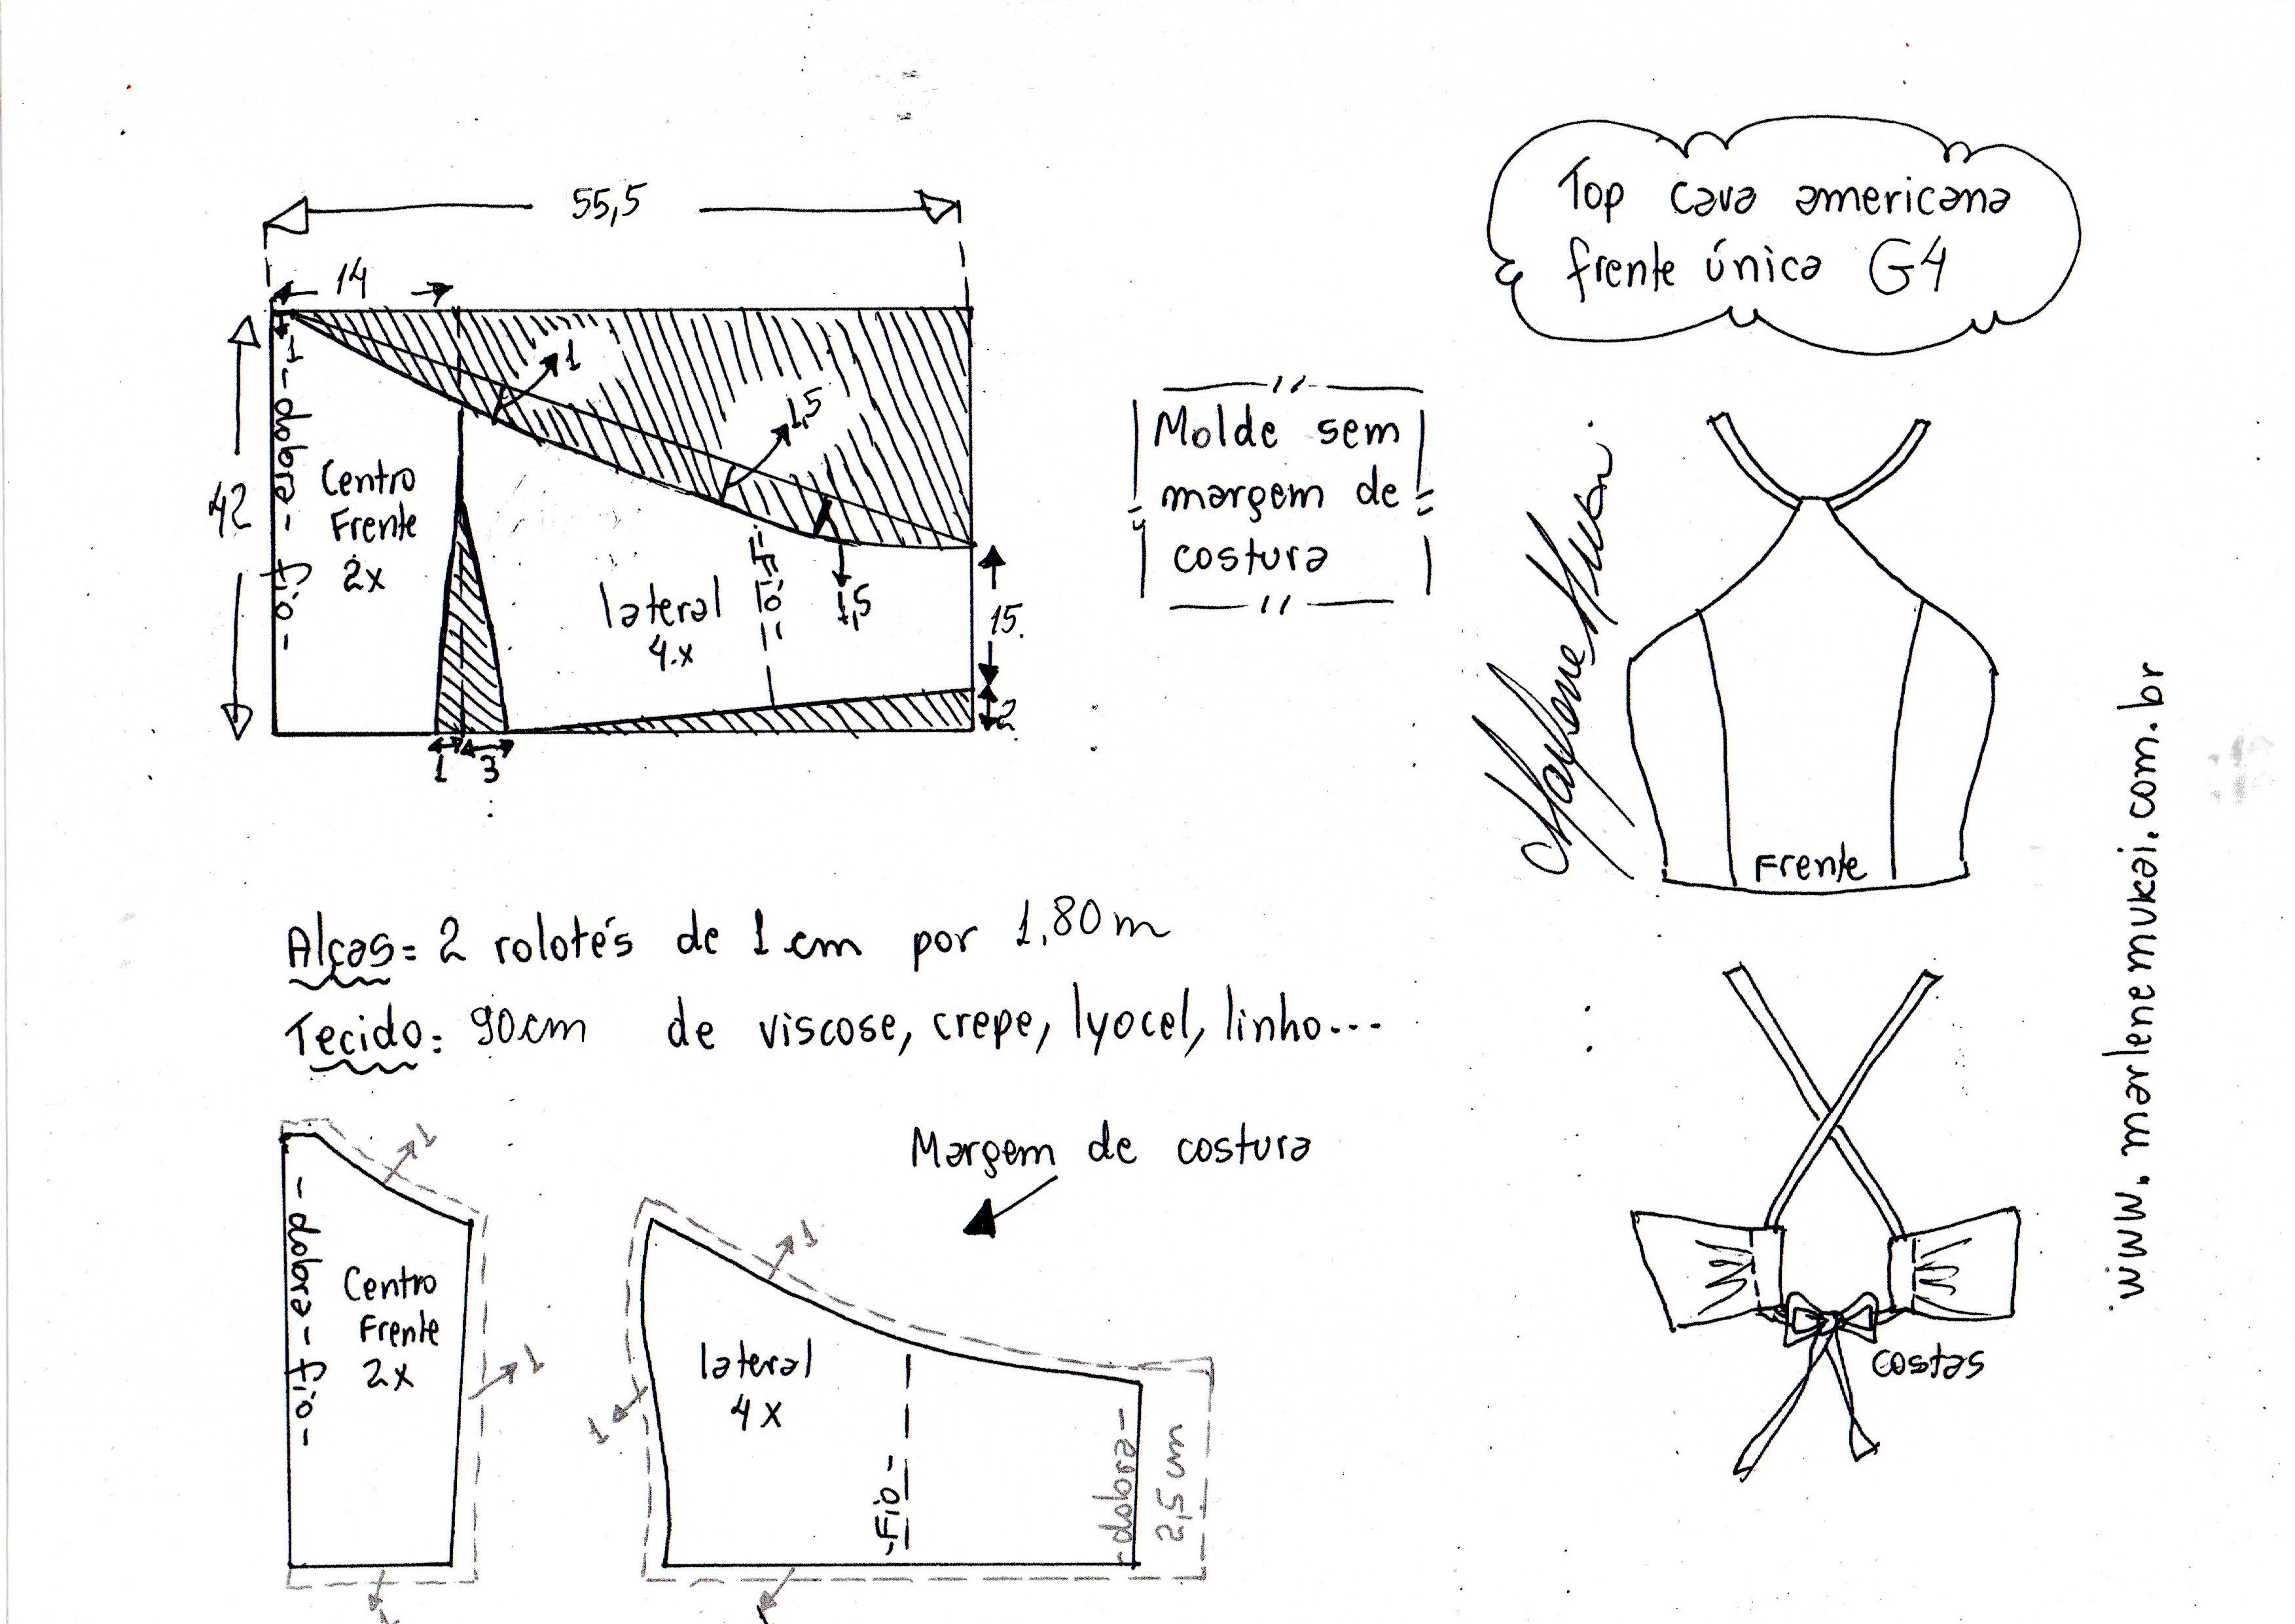 Top cava americana
frente única G4
55,5
14
1
42
- dobra - fio -
Centro
Frente
2x
1
1,5
1,5
lateral
4x
- fio -
15
2
1
3
Molde sem
margem de
costura
Marlene Mukai
Frente
www.marlenemukai.com.br
Alças = 2 rolotés de 1 cm por 1,80 m
Tecido: 90 cm de viscose, crepe, lyocel, linho...
Margem de costura
1
- dobra - fio -
Centro
Frente
2x
1
1
lateral
4x
1
- Fio -
- dobra -
2,5 cm
costas